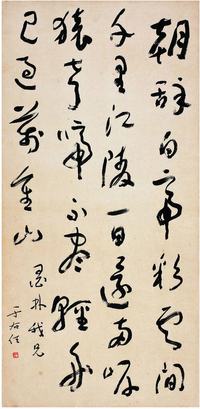 朝辭白帝彩雲間
千里江陵一日還兩岸
猿聲啼不盡輕舟
已過萬重山
我兄
于右任